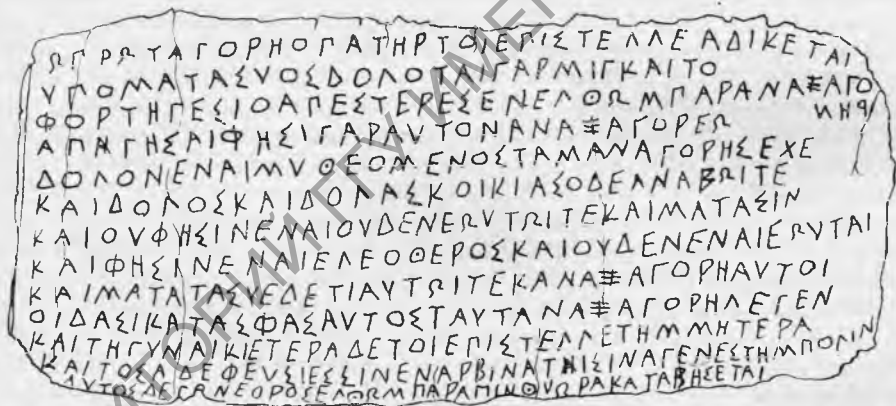 ΩΠΡΩΤΑΓΟΡΗΟΠΑΤΗΡΤΟΙΕΠΙΣΤΕΛΛΕΑΔΙΚΕΤΑΙ
ΥΠΟΜΑΤΑΣΥΟΣΔΟΛΟΤΑΙΓΑΡΜΙΓΚΑΙΤΟ
ΦΟΡΤΗΓΕΣΙΟΑΠΕΣΤΕΡΕΣΕΝΕΛΘΩΜΠΑΡΑΝΑΞΑΓΟ
ΡΗΝ
ΑΠΗΓΗΣΑΙΦΗΣΙΓΑΡΑΥΤΟΝΑΝΑΞΑΓΟΡΕΩ
ΔΟΛΟΝΕΝΑΙΜΥΘΕΟΜΕΝΟΣΤΑΜΑΝΑΓΟΡΗΣΕΧΕ
ΚΑΙΔΟΛΟΣΚΑΙΔΟΛΑΣΚΟΙΚΙΑΣΟΔΕΑΝΑΒΩΙΤΕ
ΚΑΙΟΥΦΗΣΙΝΕΝΑΙΟΥΔΕΝΕΩΥΤΩΙΤΕΚΑΙΜΑΤΑΣΙΝ
ΚΑΙΦΗΣΙΝΕΝΑΙΕΛΕΟΘΕΡΟΣΚΑΙΟΥΔΕΝΕΝΑΙΕΩΥΤΑΙ
ΚΑΙΜΑΤΑΤΑΣΥΕΔΕΤΙΑΥΤΩΙΤΕΚΑΝΑΞΑΓΟΡΗΑΥΤΟΙ
ΟΙΔΑΣΙΚΑΤΑΣΦΑΣΑΥΤΟΣΤΑΥΤΑΝΑΞΑΓΟΡΗΛΕΓΕΝ
ΚΑΙΤΗΓΥΝΑΙΚΙΕΤΕΡΑΔΕΤΟΙΕΠΙΣΤΕΛΛΕΤΗΜΜΗΤΕΡΑ
ΚΑΙΤΟΣΑΔΕΦΕΥΣΙΕΣΣΙΝΕΝΑΡΒΙΝΑΤΗΙΣΙΝΑΓΕΝΕΣΤΗΜΠΟΛΙΝ
ΑΥΤΟΣΔΕΓΑΝΕΟΡΟΣΕΛΘΩΜΠΑΡΑΜΙΝΘΥΩΡΑΚΑΤΑΒΗΣΕΤΑΙ
ИТОРИЙ ПГУ ИМЕ